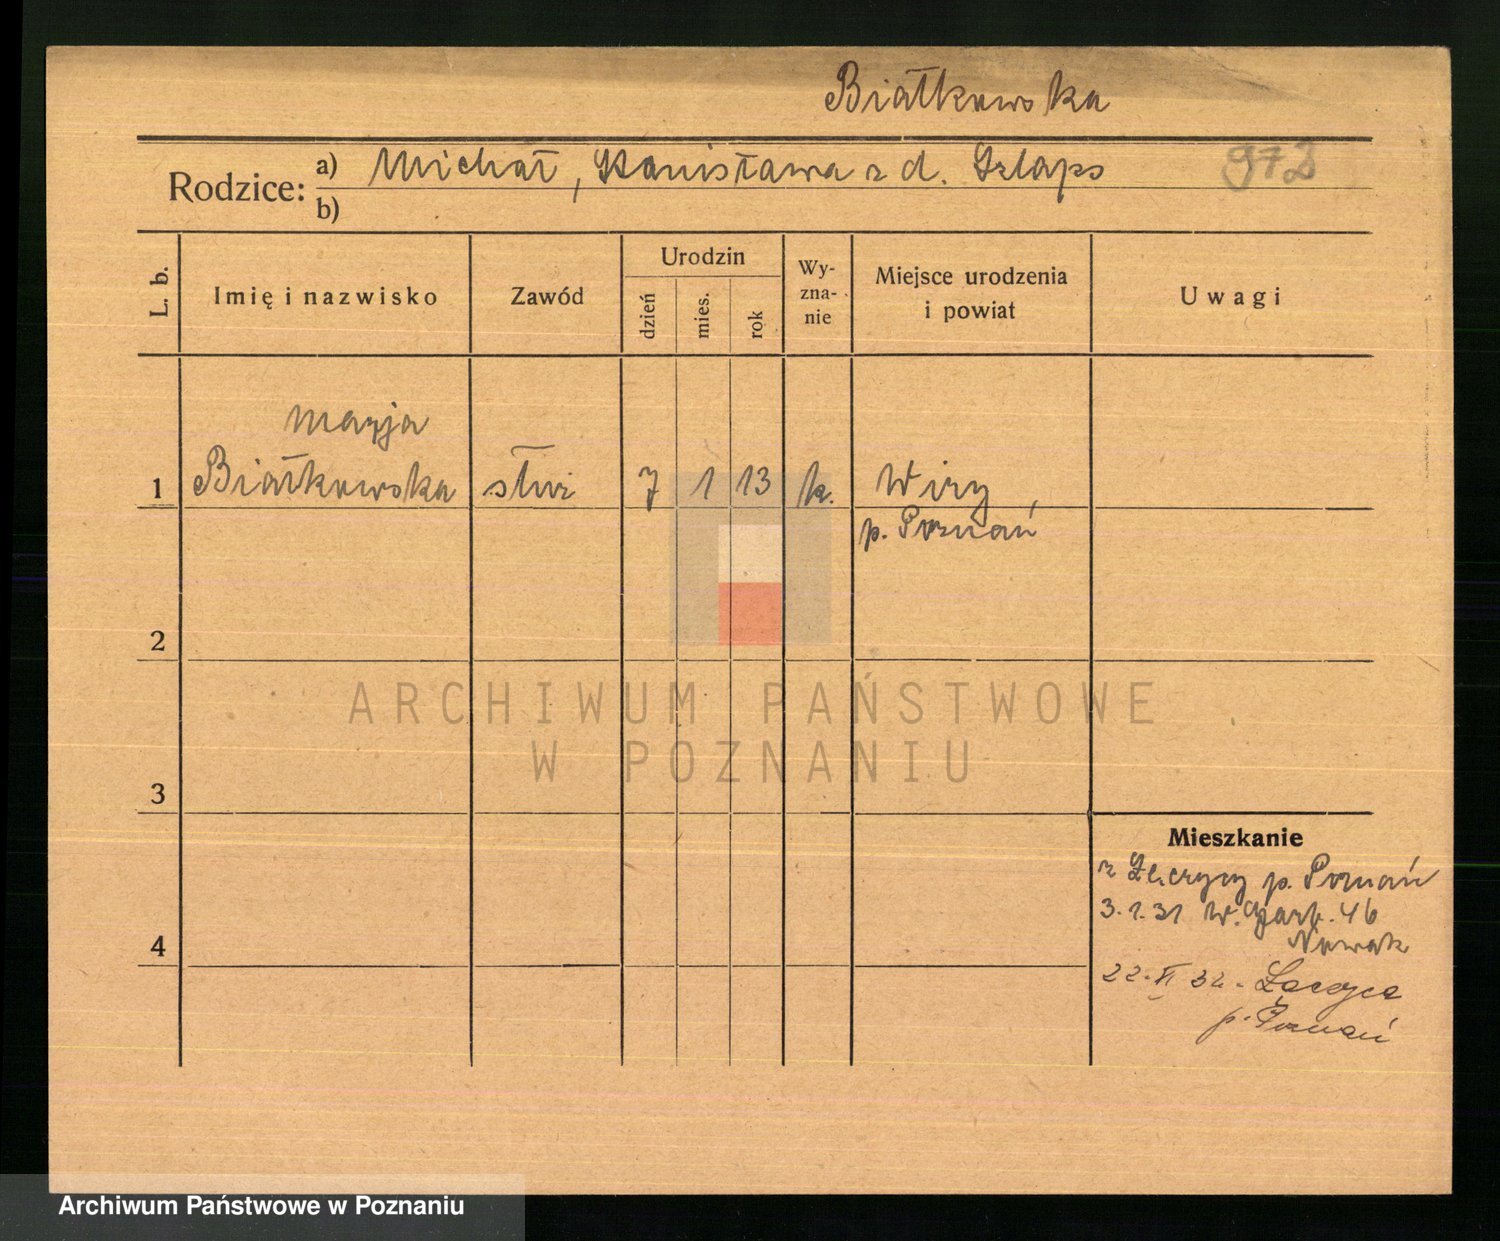 Białkowska
Rodzice: a) Michał, Stanisława z d. Szlaps
b)
972
L. b.
Imię i nazwisko
Zawód
Urodzin
dzień
mies.
rok
Wy-
zna-
nie
Miejsce urodzenia
i powiat
Uwagi
Marja
1 Białkowska służ 7 1 13 k. Wiry
p. Poznań
2
3
4
ARCHIWUM PAŃSTWOWE
W POZNANIU
Mieszkanie
z p. Poznań
3.1.31 W. Garb. 46
Nowak
22. VI 32. Łęczyca
p. Poznań
Archiwum Państwowe w Poznaniu